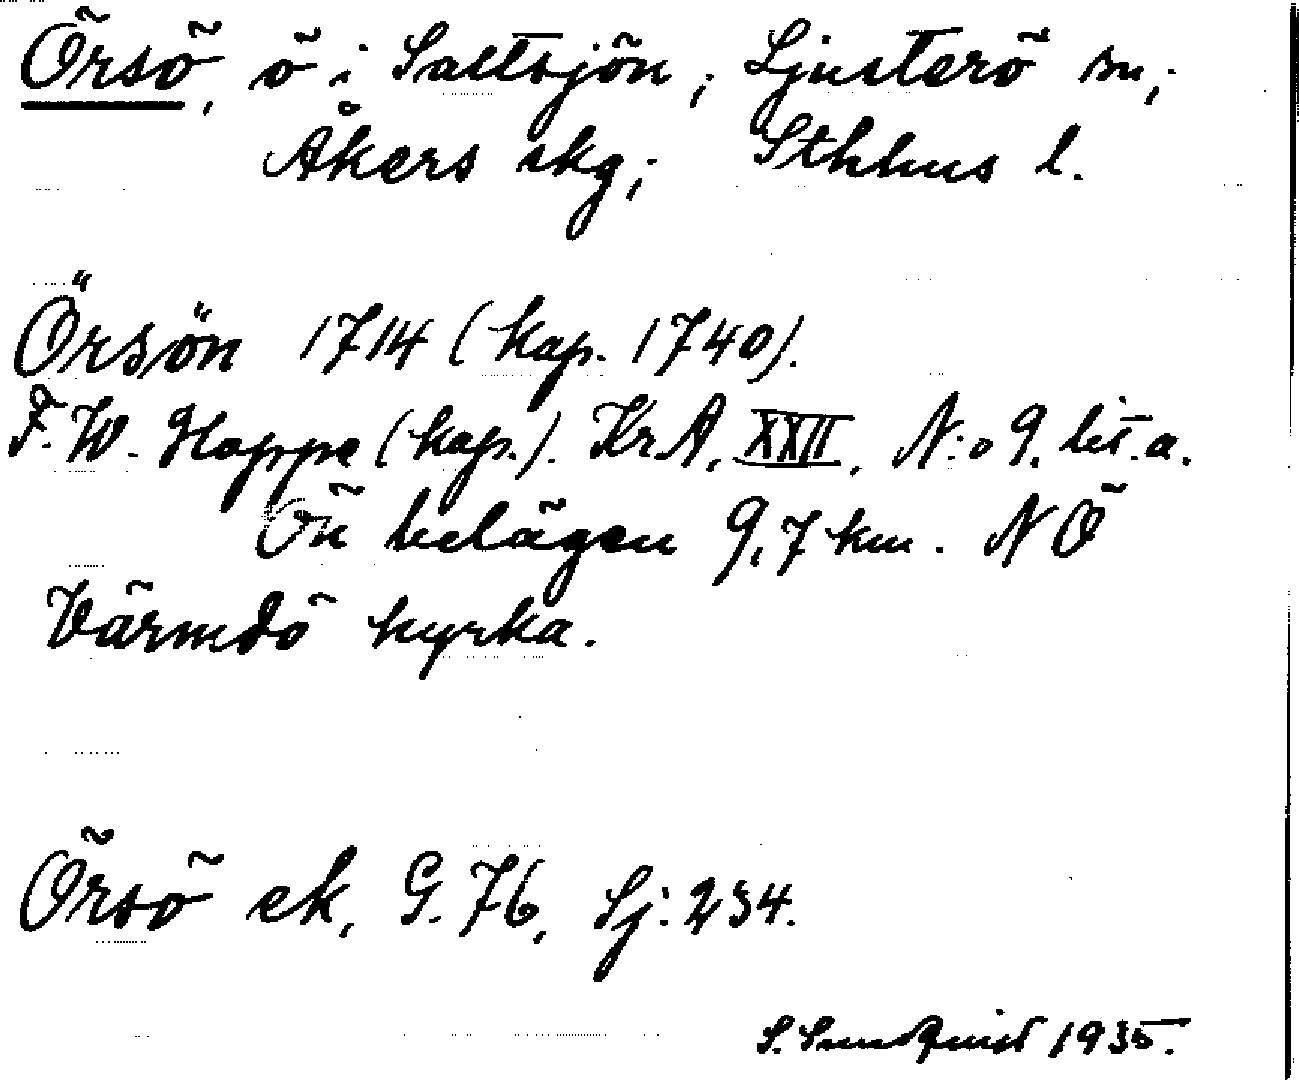 Örsö, ö i Saltsjön; Ljusterö sn;
Åkers skg; Sthlms l.
Örsön 1714 (kap. 1740).
F. W. Hoppe (kap.). KrA, XXII, N:o 9. lit. a.
Ön belägen 9,7 km. NÖ
Värmdö kyrka.
Örsö ek, G. 76, Sj: 234.
S. Sundquist 1935.